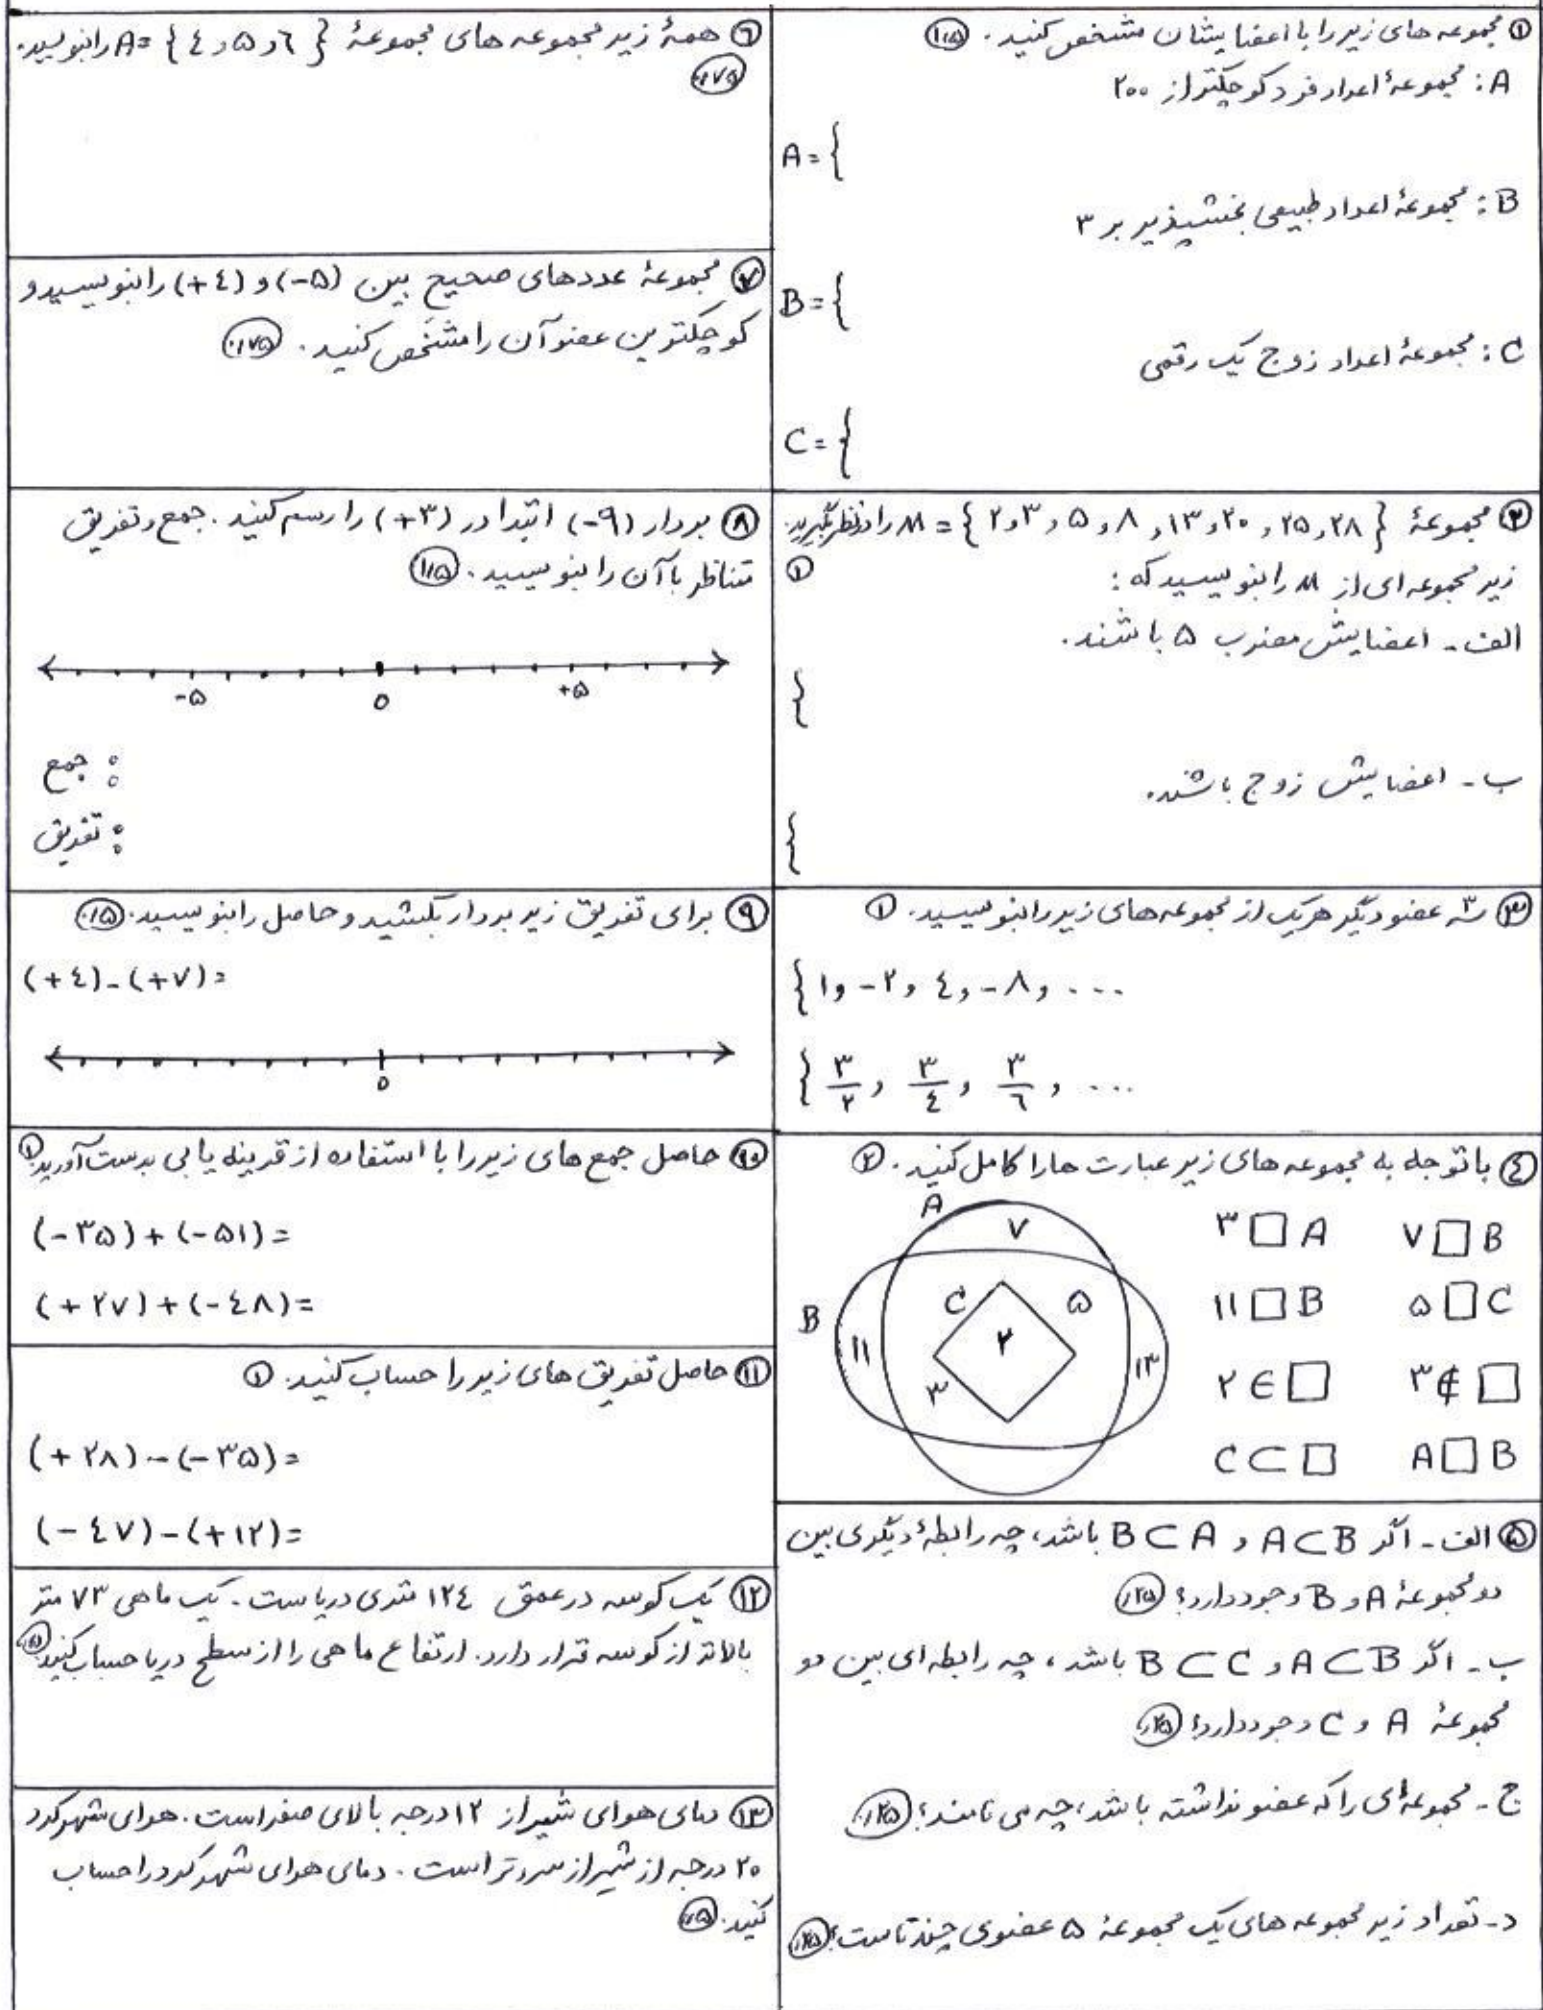 ① مجموعه های زیر را با اعضایشان مشخص کنید. (۱/۵)
A: مجموعهٔ اعداد فرد کوچکتر از ۲۰۰
A = {
B: مجموعهٔ اعداد طبیعی بخشپذیر بر ۳
B = {
C: مجموعهٔ اعداد زوج یک رقمی
C = {
② مجموعهٔ M = {۲و۳و۵و۸و۱۳و۲۰و۲۵و۲۸} را در نظر بگیرید.
زیر مجموعه ای از M را بنویسید که: (۱)
الف - اعضایش مضرب ۵ باشند.
{
ب - اعضایش زوج باشند.
{
③ سه عضو دیگر هریک از مجموعه های زیر را بنویسید. (۱)
{۱و -۲و ۴و -۸و ...
{ ۳/۲ , ۳/۴ , ۳/۶ , ...
④ با توجه به مجموعه های زیر عبارت ها را کامل کنید. (۲)
A
۷
B
C
۵
۲
۱۱
۱۳
۳
۳ □ A ۷ □ B
۱۱ □ B ۵ □ C
۲ ∈ □ ۳ ∉ □
C ⊂ □ A □ B
⑤ الف - اگر A⊂B و B⊂A باشد، چه رابطهٔ دیگری بین
دو مجموعهٔ A و B وجود دارد؟ (۰/۲۵)
ب - اگر A⊂B و B⊂C باشد، چه رابطه ای بین دو
مجموعهٔ A و C وجود دارد؟ (۰/۲۵)
ج - مجموعه ای را که عضو نداشته باشد، چه می نامند؟ (۰/۲۵)
د - تعداد زیر مجموعه های یک مجموعهٔ ۵ عضوی چند تاست؟ (۰/۲۵)
⑥ همهٔ زیر مجموعه های مجموعهٔ A = {۴و۵و۶} را بنویسید.
(۰/۷۵)
⑦ مجموعهٔ عددهای صحیح بین (-۵) و (+۴) را بنویسید و
کوچکترین عضو آن را مشخص کنید. (۰/۷۵)
⑧ بردار (-۹) ابتدا در (+۳) را رسم کنید. جمع و تفریق
متناظر با آن را بنویسید. (۱/۵)
-۵ ۰ +۵
جمع :
تفریق :
⑨ برای تفریق زیر بردار بکشید و حاصل را بنویسید. (۰/۵)
(+۴)-(+۷)=
۰
⑩ حاصل جمع های زیر را با استفاده از قرینه یابی بدست آورید. (۱)
(-۳۵)+(-۵۱)=
(+۲۷)+(-۴۸)=
⑪ حاصل تفریق های زیر را حساب کنید. (۱)
(+۲۸)-(-۳۵)=
(-۴۷)-(+۱۲)=
⑫ یک کوسه در عمق ۱۲۴ متری دریاست. یک ماهی ۷۳ متر
بالاتر از کوسه قرار دارد. ارتفاع ماهی را از سطح دریا حساب کنید.
⑬ دمای هوای شیراز ۱۲ درجه بالای صفر است. هوای شهرکرد
۲۰ درجه از شیراز سردتر است. دمای هوای شهرکرد را حساب
کنید. (۰/۵)